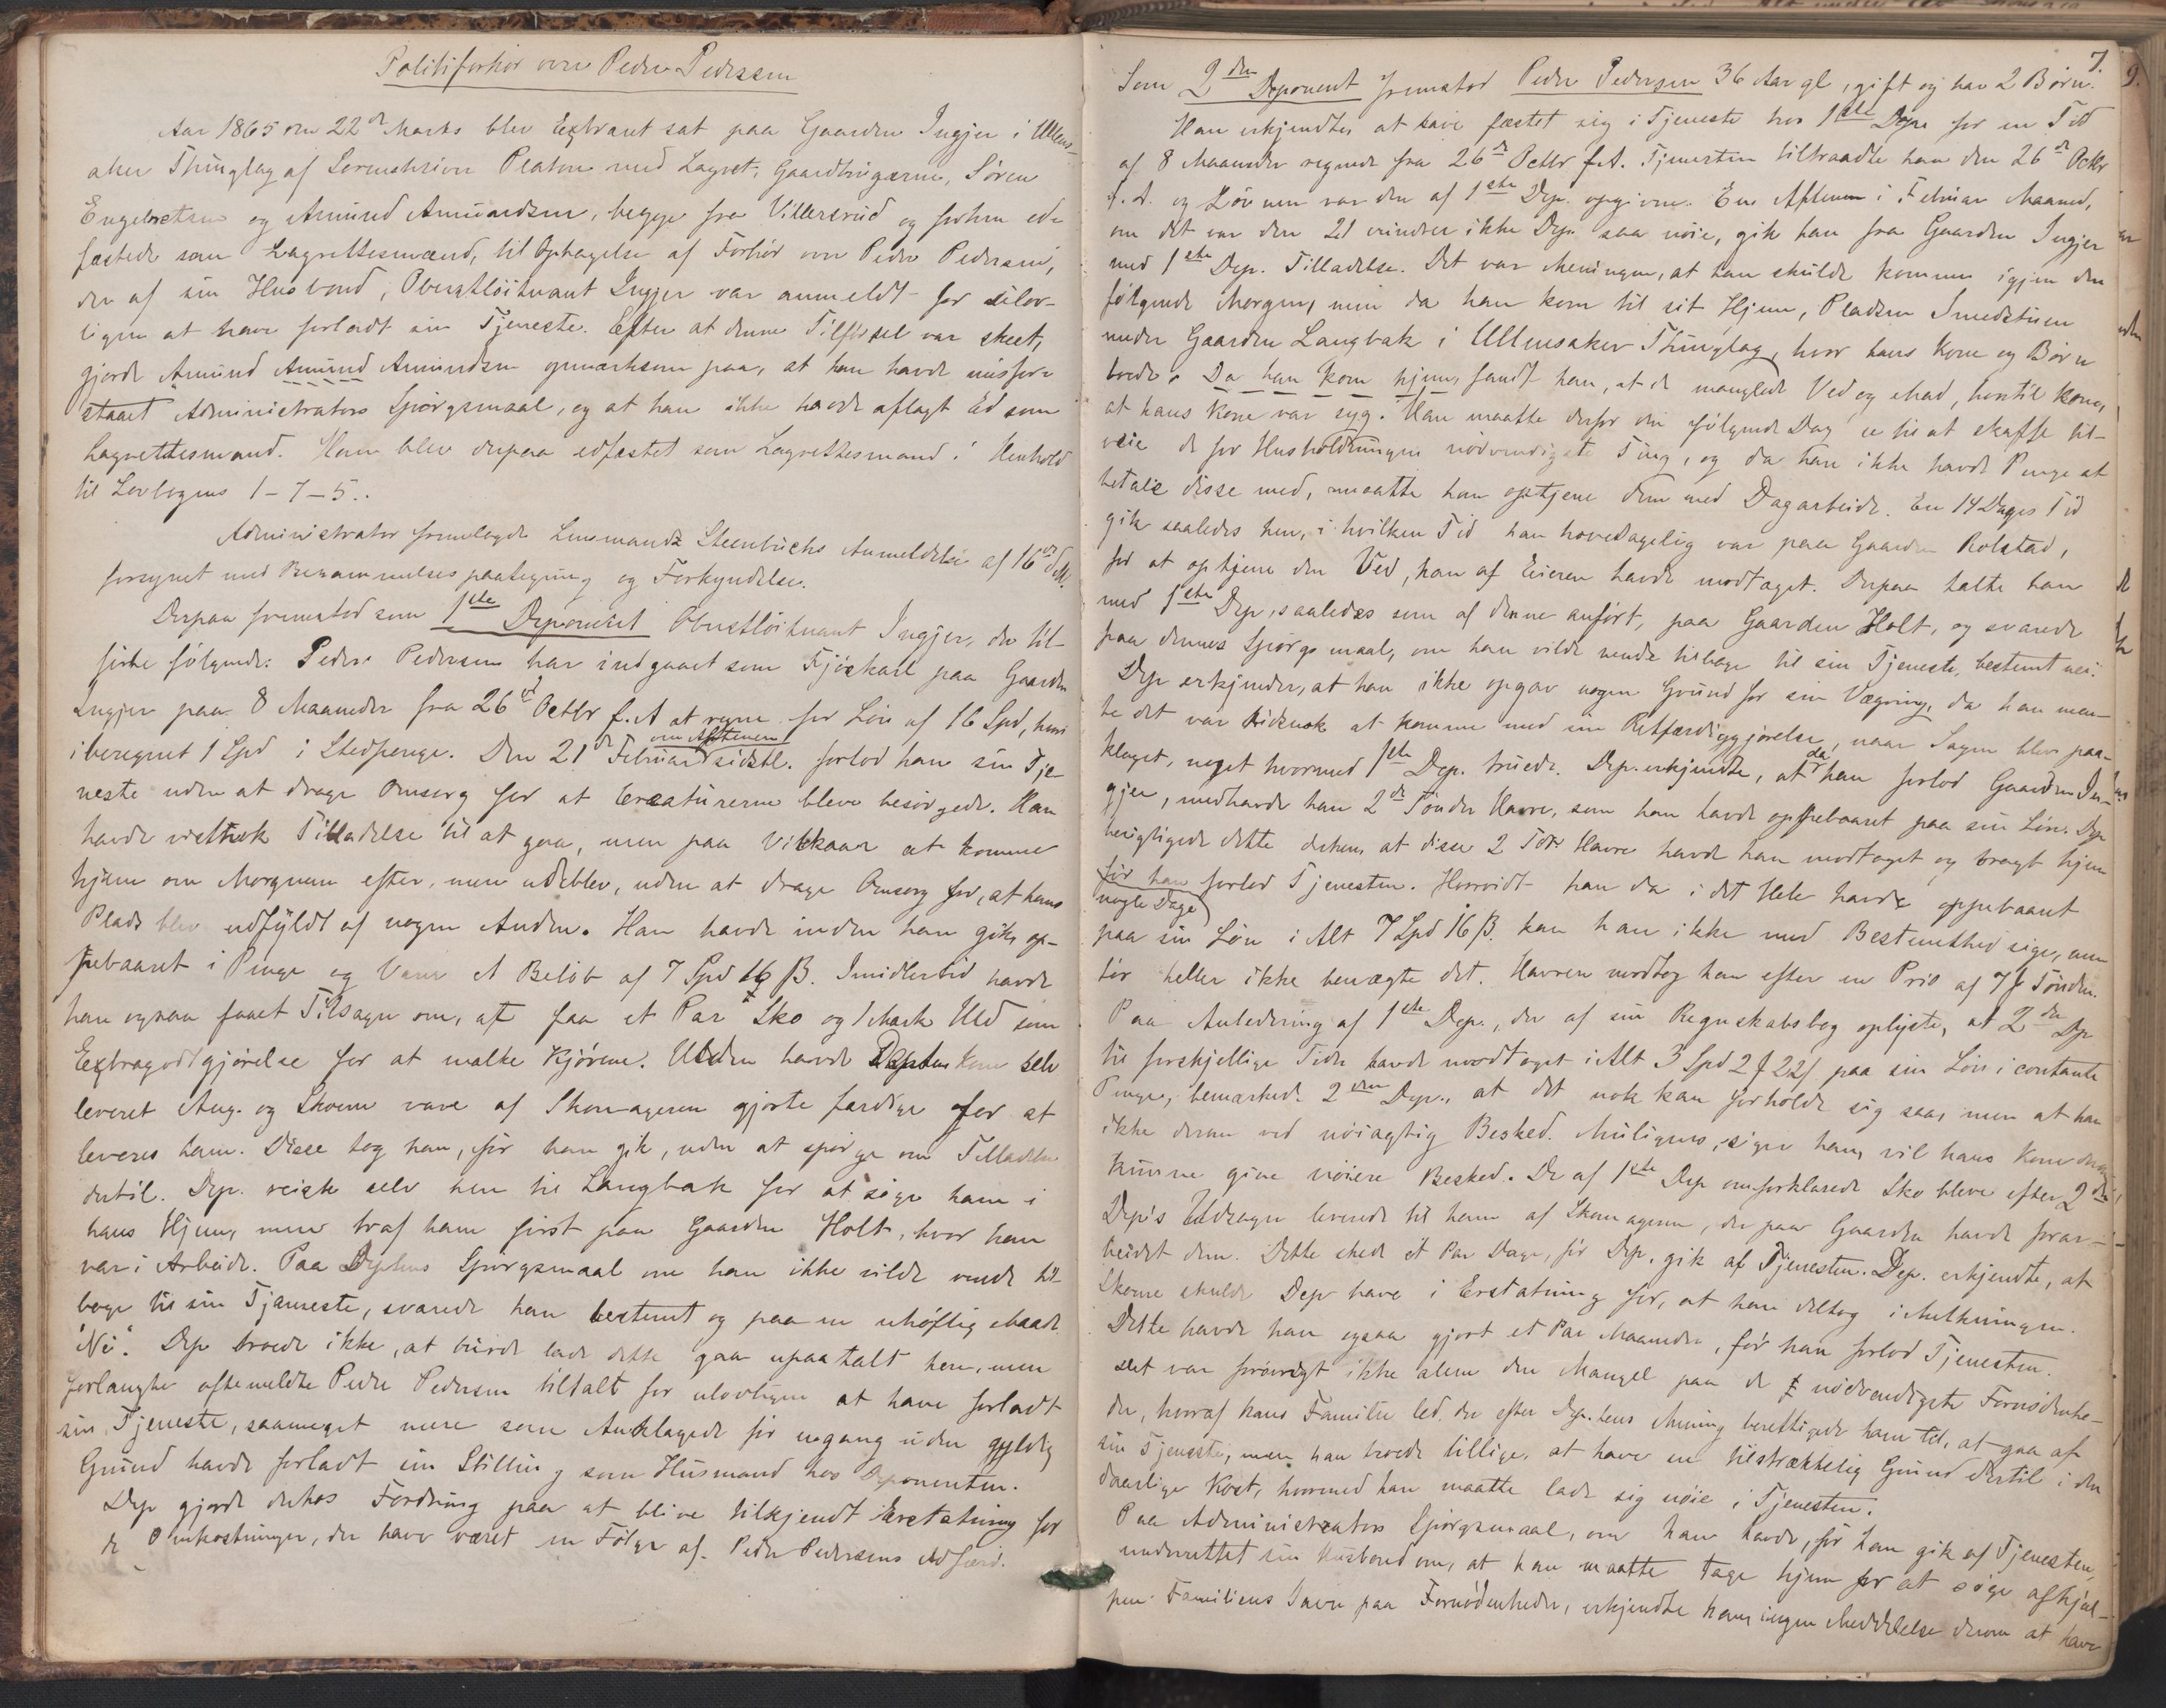 Politiforhør over Peder Pedersen
Aar 1865 den 22de Marts blev Extraret sat paa Gaarden Ingjer i Ullens-
aker Thinglag af Sorenskriver Platou med Lagret, Gaardbrugerne, Søren
Engebretsen og Amund Amundsen, begge fra Villersrud og forhen ed-
fæstede som Lagrettesmænd, til Optagelse af Forhør over Peder Pedersen,
der af sin Husbond, Oberstløitnant Ingjer var anmeldt for ulov-
ligen at have forladt sin Tjeneste. Efter at denne Tilførsel var skeet,
gjorde Amund Amund Amundsen opmærksom paa, at han havde misfor-
staaet Administrators Spørgsmaal, og at han ikke havde aflagt Ed som
Lagrettesmand. Han blev derpaa edfæstet som Lagrettesmand i Henhold
til Lovbogens 1-7-5..
Administrator fremlagde Lensmand Steenbuchs Anmeldelse af 16de ds.
forsynet med Berammelsespaategning og Forkyndelse.
Derpaa fremstod som 1ste Deponent Oberstløitnant Ingjer, der til-
førte følgende: Peder Pedersen har indgaaet som Fjøskarl paa Gaarden
Ingjer paa 8 Maaneder fra 26de Octbr f.A at regne for Løn af 16 Spd, heri
iberegnet 1 Spd i Stedpenge. Den 21de Februar sidstl. forlod han sin Tje-
om Aftenen
neste uden at drage Omsorg for at Creaturerne bleve besørgede. Han
havde vistnok Tilladelse til at gaa, men paa Vilkaar at komme
hjem om Morgenen efter, men udeblev, uden at drage Omsorg for, at hans
Plads blev udfyldt af nogen Anden. Han havde inden han gik, op-
pebaaret i Penge og Varer et Beløb af 7 Spd 16 β. Imidlertid havde
han ogsaa faaet Tilsagn om, at faa et Par Sko og 1 Mark Uld som
Extragodtgjørelse for at malke Kjørene. Ulden havde Deptens Kone selv
leveret Aug. og Skoene vare af Skomageren gjorte færdige for at
leveres ham. Disse tog han, før han gik, uden at spørge om Tilladelse
dertil. Dep. reiste selv hen til Langbak for at søge ham i
hans Hjem, men traf ham først paa Gaarden Holt, hvor han
var i Arbeide. Paa Deptens Spørgsmaal om han ikke vilde vende til-
bage til sin Tjeneste, svarede han bestemt og paa en uhøflig Maade
"Nei". Dep troede ikke, at burde lade dette gaa upaatalt hen, men
forlangte oftemeldte Peder Pedersen tiltalt for ulovligen at have forladt
sin Tjeneste, saameget mere som Anklagede før engang uden gyldig
Grund havde forladt sin Stilling som Husmand hos Deponenten.
Dep gjorde derhos Fordring paa at blive tilkjendt Erstatning for
de Omkostninger, der have været en Følge af Peder Pedersens Adfærd.
7.
Som 2den Deponent fremstod Peder Pedersen 36 Aar gl, gift og har 2 Børn.
Han erkjendte, at have fæstet sig i Tjeneste hos 1ste Dep for en Tid
af 8 Maaneder regnede fra 26de Octbr f.A. Tjenesten tiltraadte han den 26de Octbr
f.A. og Lønnen var den af 1ste Dep. opgivne. En Aften i Februar Maaned,
om det var den 21 erindrer ikke Dep. saa nøie, gik han fra Gaarden Ingjer
med 1ste Dep. Tilladelse. Det var Meningen, at han skulde komme igjen den
følgende Morgen, men da han kom til sit Hjem, Pladsen Smedstuen
under Gaarden Langbak i Ullensaker Thinglag, hvor hans Kone og Børn
boede. Da han kom hjem, fandt han, at de manglede Ved og Mad, hvortil kom,
at hans Kone var syg. Han maatte derfor den følgende Dag se til at skaffe til-
veie de for Husholdningen nødvendigste Ting, og da han ikke havde Penge at
betale disse med, maatte han optjene dem med Dagarbeide. En 14 Dages Tid
gik saaledes hen, i hvilken Tid han hovedsagelig var paa Gaarden Rolstad,
for at optjene den Ved, han af Eieren havde modtaget. Derpaa talte han
med 1ste Dep, saaledes som af denne anført, paa Gaarden Holt, og svarede
paa dennes Spørgsmaal, om han vilde vende tilbage til sin Tjeneste, bestemt nei.
Dep erkjender, at han ikke opgav nogen Grund for sin Vægring, da han men-
te det var tidsnok at komme med sin Retfærdiggjørelse, naar Sagen blev paa-
klaget, noget hvormed 1ste Dep. truede. Dep. erkjendte, at da han forlod Gaarden In-
gjer, medhavde han 2de Tønder Havre, som han havde oppebaaret paa sin Løn. Dep
berigtigede dette derhen, at disse 2 Tdr Havre havde han modtaget og bragt hjem
før han forlod Tjenesten. Hvorvidt han da i det Hele havde oppebaaret
nogle Dage
paa sin Løn i Alt 7 Spd 16 β. kan han ikke med Bestemthed sige, men
tør heller ikke benægte det. Havren modtog han efter en Pris af 7 Tønden.
Paa Anledning af 1ste Dep., der af sin Regnskabsbog oplyste, at 2den Dep
til forskjellige Tider havde modtaget i Alt 3 Spd 2 22 paa sin Løn i contante
Penge, bemærkede 2den Dep., at det nok kan forholde sig saa, men at han
ikke derom ved nøiagtig Besked. Muligens, siger han, vil hans Kone derom
kunne give nøiere Besked. De af 1ste Dep omforklarede Sko bleve efter 2den
Dep's Udsagn leverede til ham af Skomageren, der paa Gaarden havde forar-
beidet dem. Dette skede et Par Dage, før Dep. gik af Tjenesten. Dep. erkjendte, at
Skoene skulde Dep have i Erstatning for, at han deltog i Melkningen.
Dette havde han ogsaa gjort et Par Maaneder, før han forlod Tjenesten.
Det var forøvrigt ikke alene den Mangel paa de nødvendigste Fornødenhe-
der, hvoraf hans Familie led, der efter Dep.tens Mening berettigede ham til, at gaa af
sin Tjeneste, men han troede tillige, at have en tilstrækkelig Grund dertil i den
daarlige Kost, hvormed han maatte lade sig nøie i Tjenesten.
Paa Administrators Spørgsmaal, om han havde, før han gik af Tjenesten,
underrettet sin Husbond om, at han maatte tage hjem for at søge afhjul-
pen Familiens Savn paa Fornødenheder, erkjendte han, ingen Meddelelse derom at have